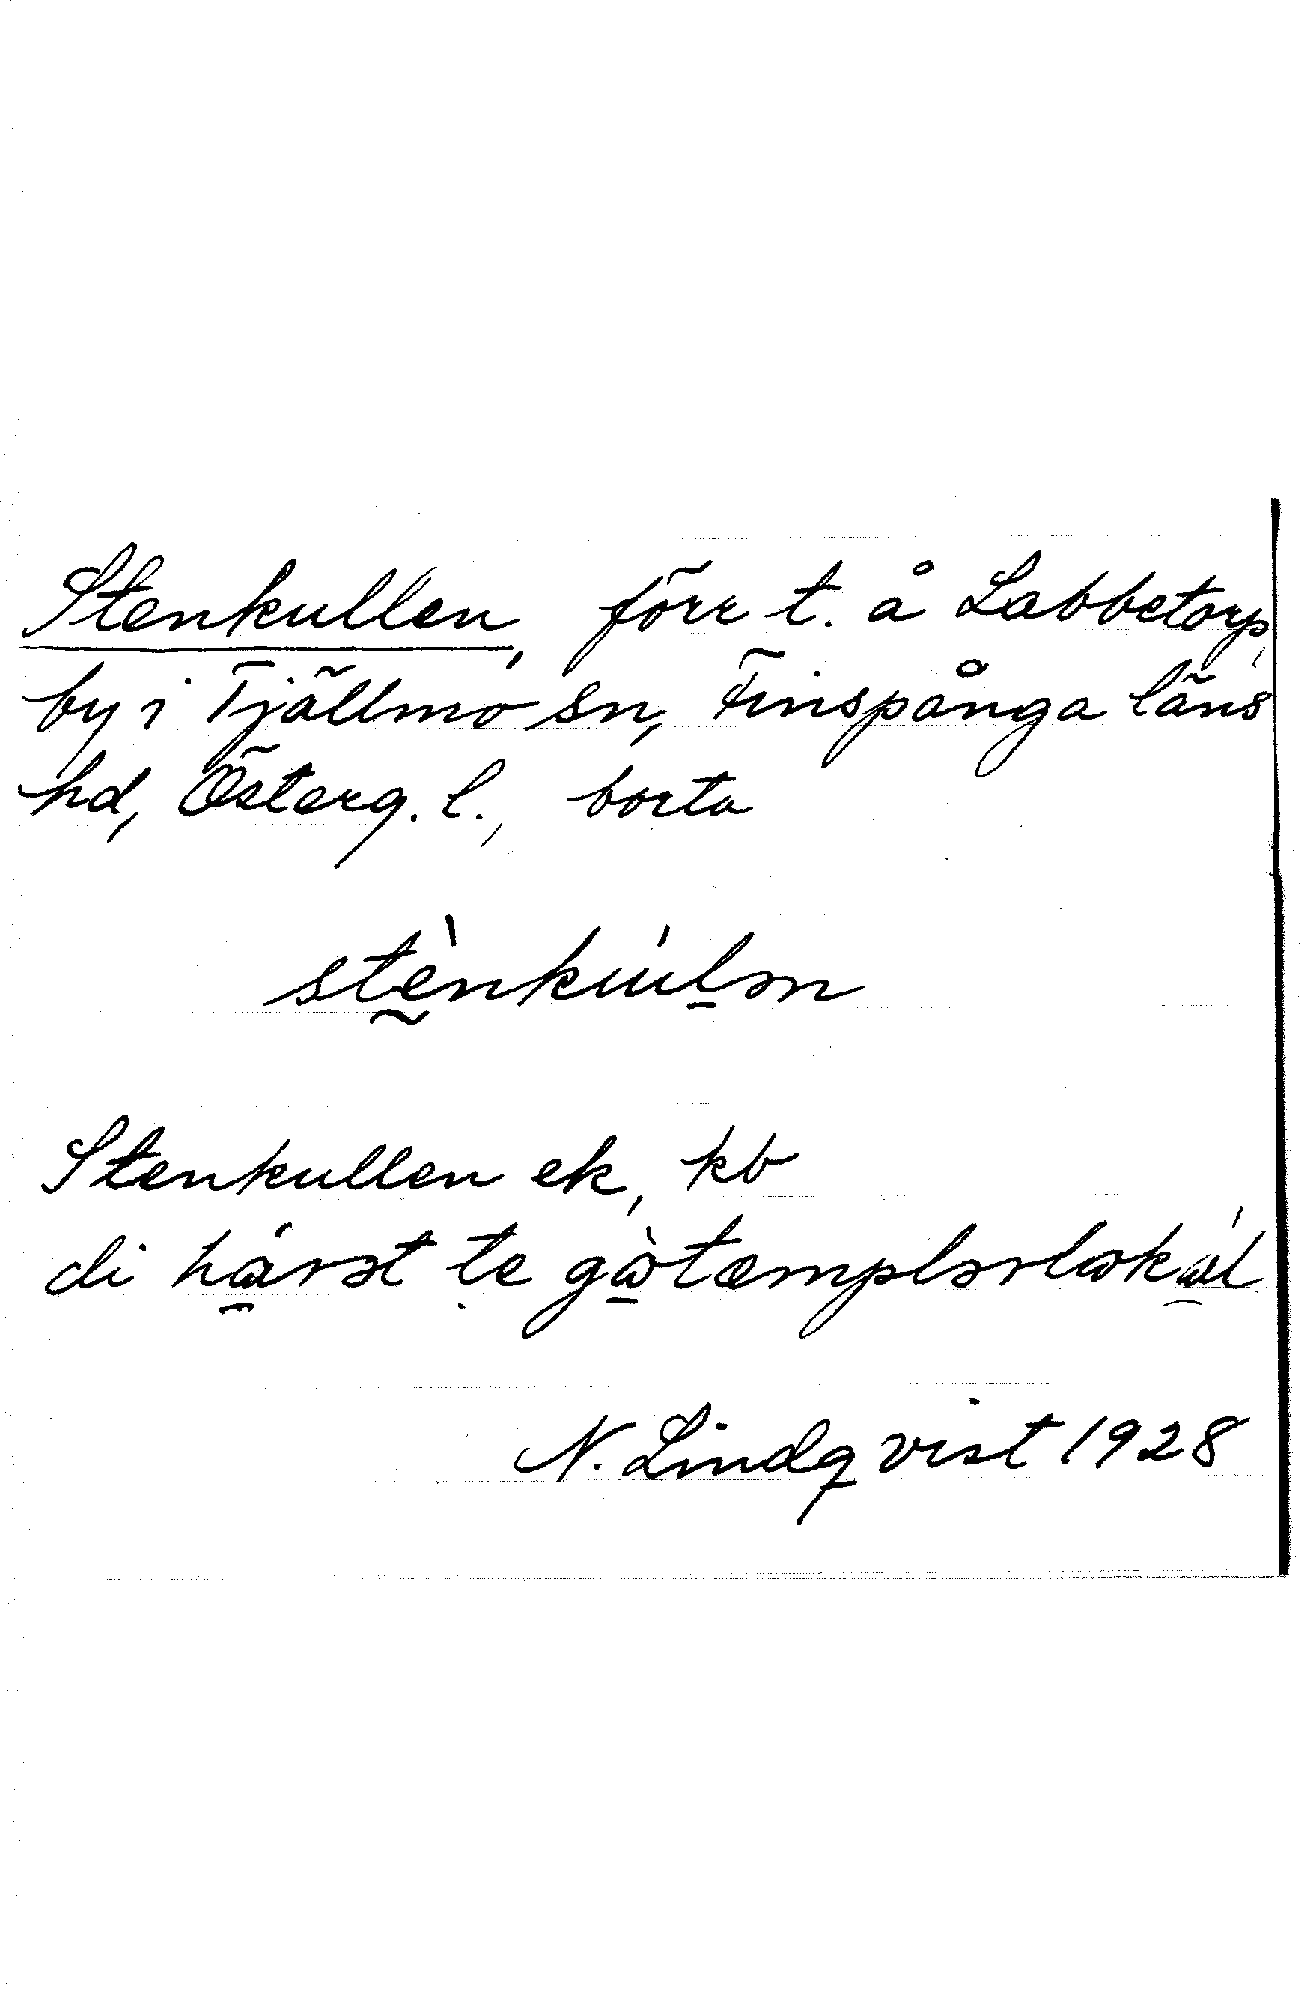 Stenkullen, förr t. å Labbetorp,
by i Tjällmo sn, Finspånga läns
hd, Österg. l., borta
stènkúlən
Stenkullen ek, kb
di hä̀vət te gòtæmplərlokál
N. Lindqvist 1928